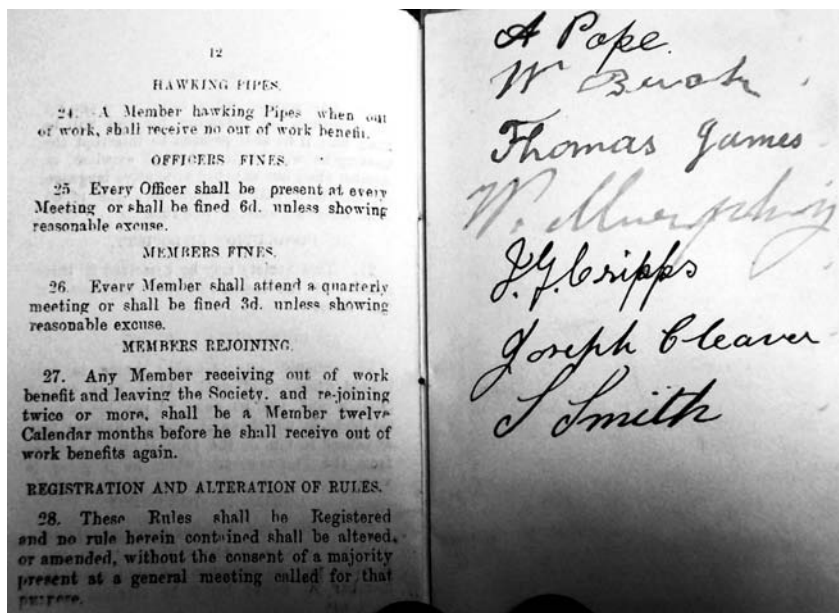 12
HAWKING PIPES.
24. A Member hawking Pipes when out
of work, shall receive no out of work benefit.
OFFICERS FINES.
25 Every Officer shall be present at every
Meeting or shall be fined 6d. unless showing
reasonable excuse.
MEMBERS FINES.
26. Every Member shall attend a quarterly
meeting or shall be fined 3d. unless showing
reasonable excuse.
MEMBERS REJOINING.
27. Any Member receiving out of work
benefit and leaving the Society, and re-joining
twice or more, shall be a Member twelve
Calendar months before he shall receive out of
work benefits again.
REGISTRATION AND ALTERATION OF RULES.
28. These Rules shall be Registered
and no rule herein contained shall be altered,
or amended, without the consent of a majority
present at a general meeting called for that
purpose.
A Pope.
W
Thomas James
W. Murphy
J. G. Cripps
Joseph Cleaver
S Smith